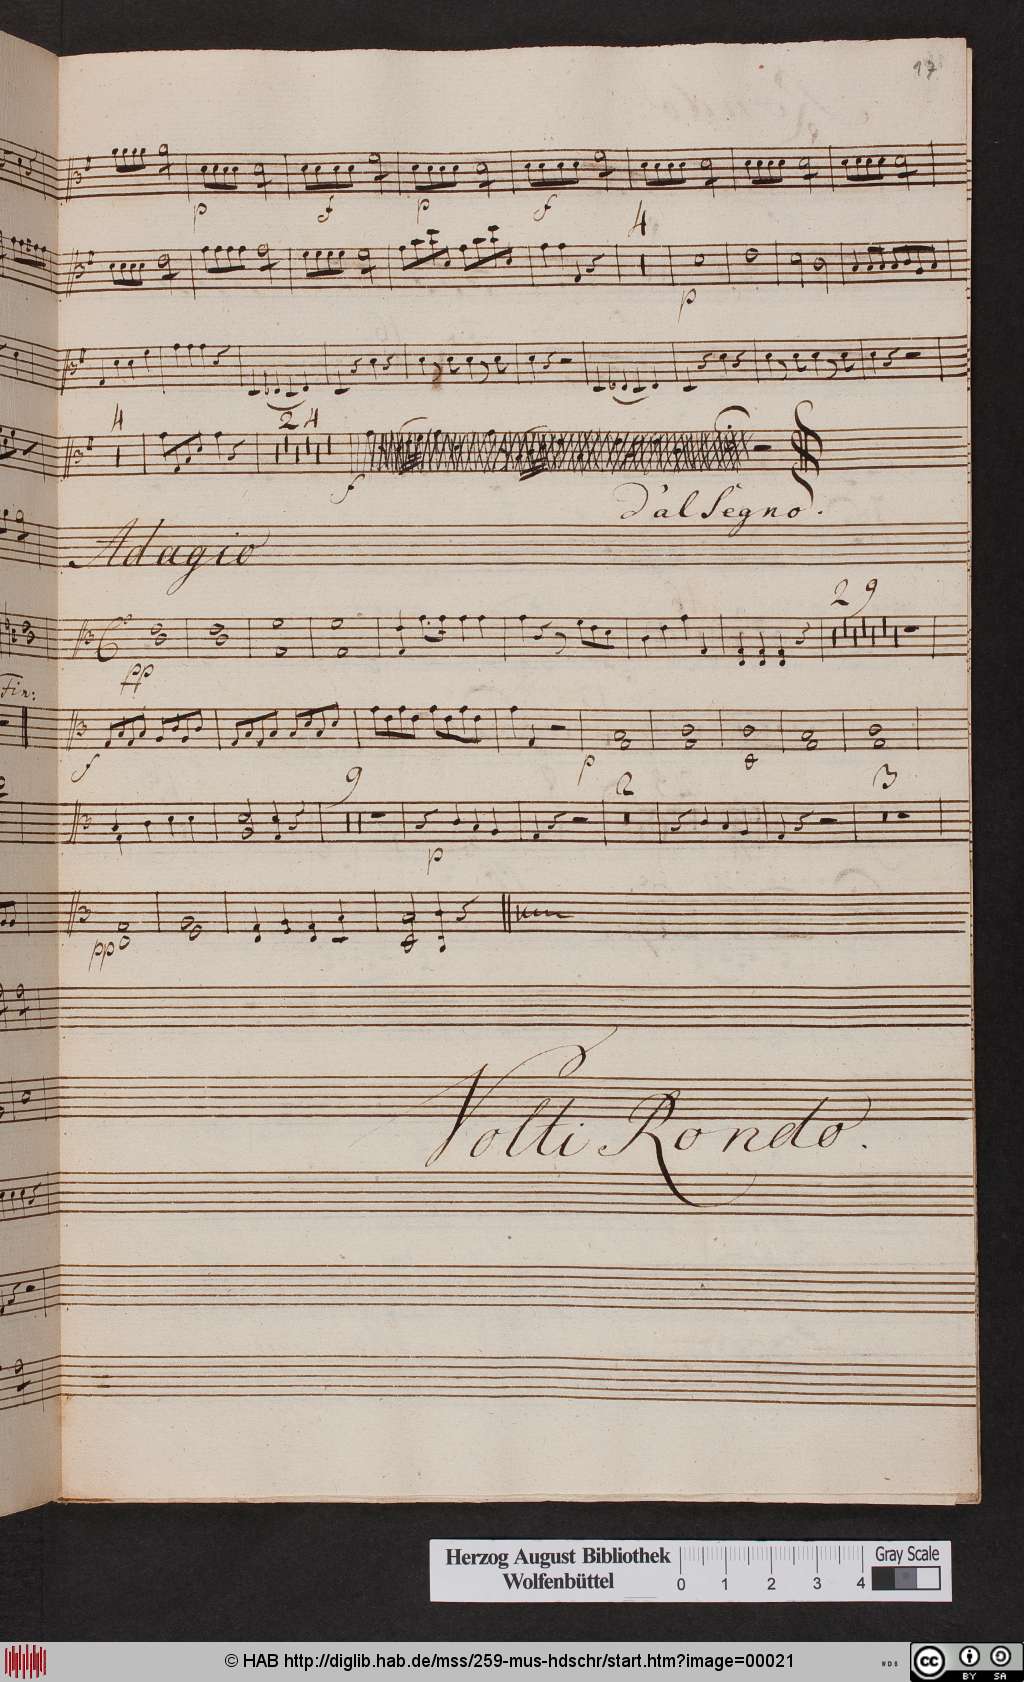 17
p f p f
4
p
4 2 4
f
d'al Segno.
Adagio
pp
29
Fin:
f p
9 2 3
p
pp
Volti Rondo.
Herzog August Bibliothek
Wolfenbüttel
0 1 2 3 4
Gray Scale
© HAB http://diglib.hab.de/mss/259-mus-hdschr/start.htm?image=00021
WDB
cc
BY SA